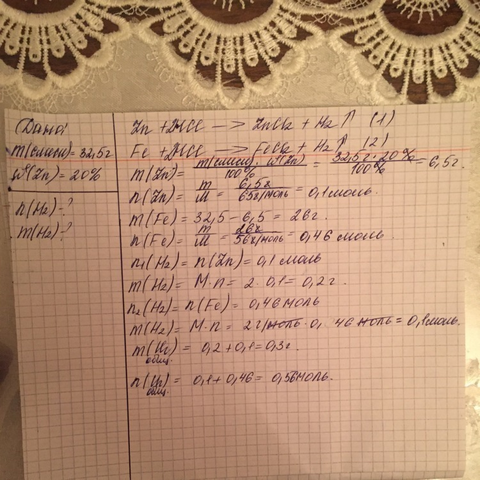 Дано:
m(смеси) = 32,5г
W(Zn) = 20%
n(H₂)-?
m(H₂)-?
Zn + 2HCl —> ZnCl₂ + H₂↑ (1)
Fe + 2HCl —> FeCl₂ + H₂↑ (2)
m(Zn) = m(смеси) · W(Zn) / 100% = 32,5г · 20% / 100% = 6,5г.
n(Zn) = m / M = 6,5г / 65г/моль = 0,1 моль.
m(Fe) = 32,5 - 6,5 = 26г.
n(Fe) = m / M = 26г / 56г/моль = 0,46 моль.
n₁(H₂) = n(Zn) = 0,1 моль
m(H₂) = M·n = 2 · 0,1 = 0,2г.
n₂(H₂) = n(Fe) = 0,46 моль
m(H₂) = M·n = 2г/моль · 0,46 моль = 0,1моль.
m(H₂)общ. = 0,2 + 0,1 = 0,3г.
n(H₂)общ. = 0,1 + 0,46 = 0,56моль.